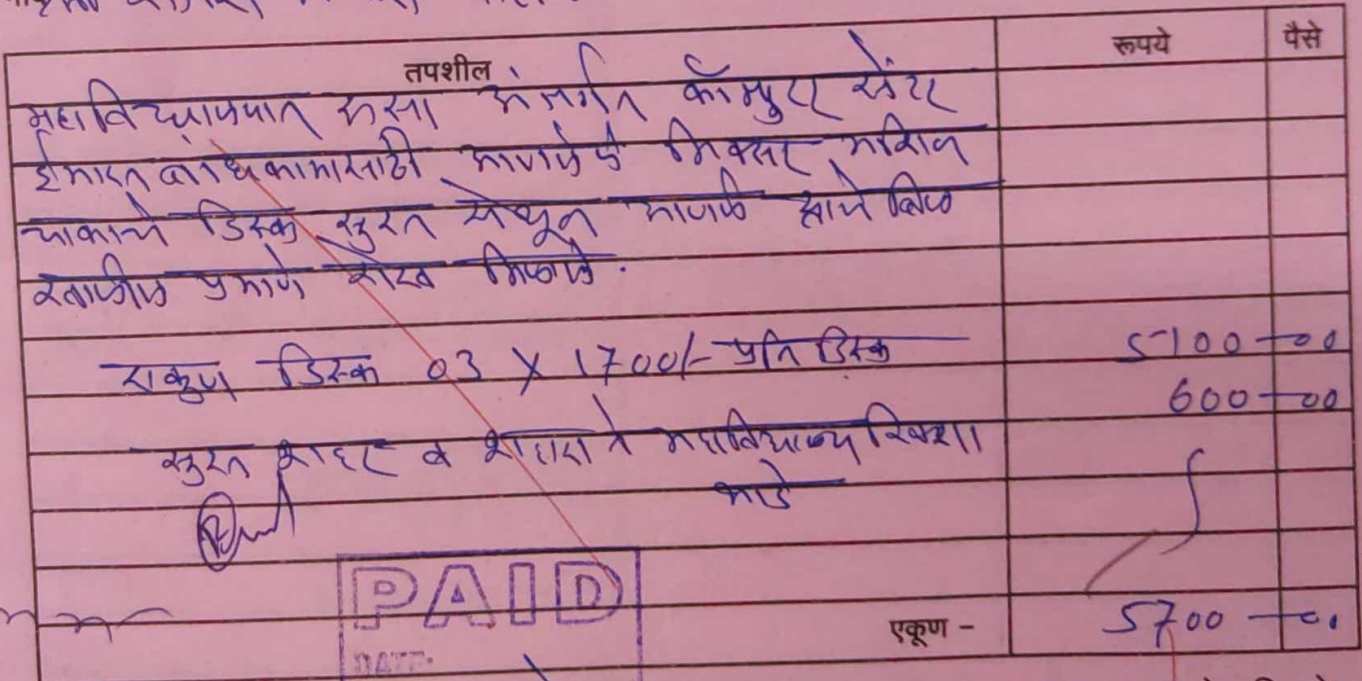 तपशील रूपये पैसे
महाविद्यालयात रुसा अंतर्गत कॉम्पुटर सेंटर
ईमारत बांधकामासाठी आणलेले मिक्सर मशिन
चाकाचे डिस्क सुरत येथून आणले त्याचे बिल
खालील प्रमाणे रोख मिळाले.
एकुण डिस्क 03 X 1700/- प्रति डिस्क 5100-00
600-00
सुरत शहर व शहादा ते महाविद्यालय रिक्शा
भाडे
PAID
DATE.
एकूण - 5700-00